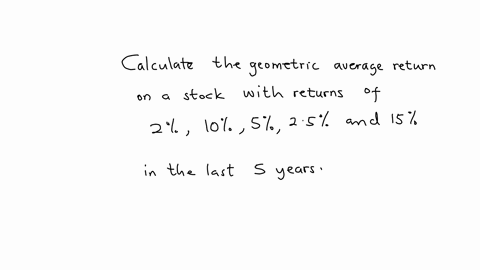 Calculate the geometric average return
on a stock with returns of
2%, 10%, 5%, 2.5% and 15%
in the last 5 years.